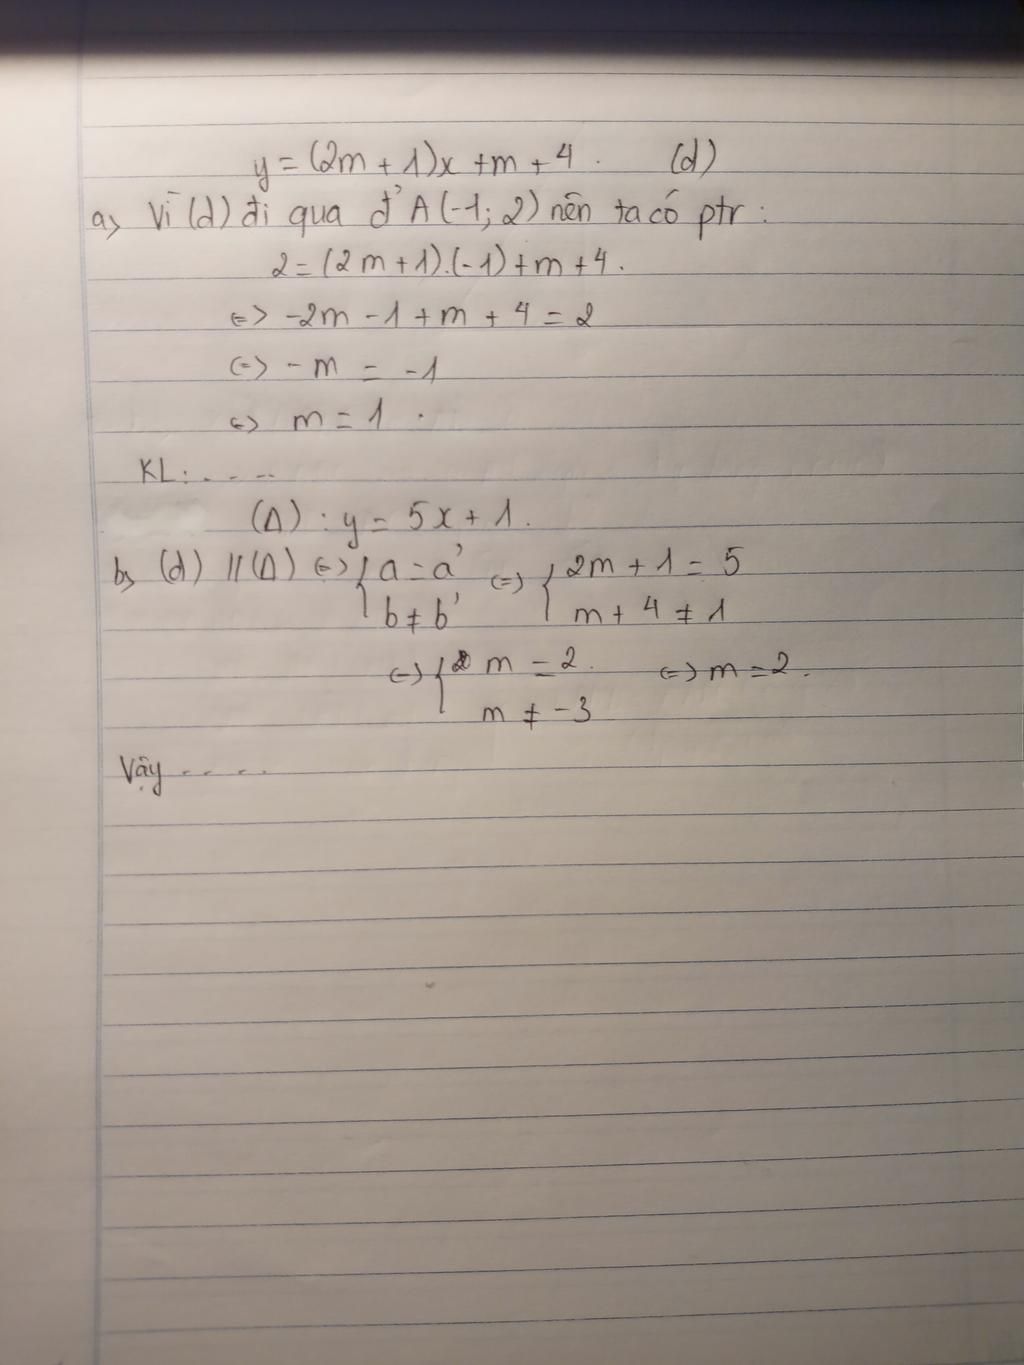 y = (2m + 1)x + m + 4. (d)
a, Vì (d) đi qua đ' A(-1; 2) nên ta có ptr:
2 = (2m + 1).(-1) + m + 4.
<=> -2m - 1 + m + 4 = 2
<=> - m = -1
<=> m = 1.
KL: ....
(Δ) : y = 5x + 1.
b, (d) // (Δ) <=> { a = a' <=> { 2m + 1 = 5
b ≠ b' m + 4 ≠ 1
<=> { m = 2. <=> m = 2.
m ≠ -3
Vậy .....